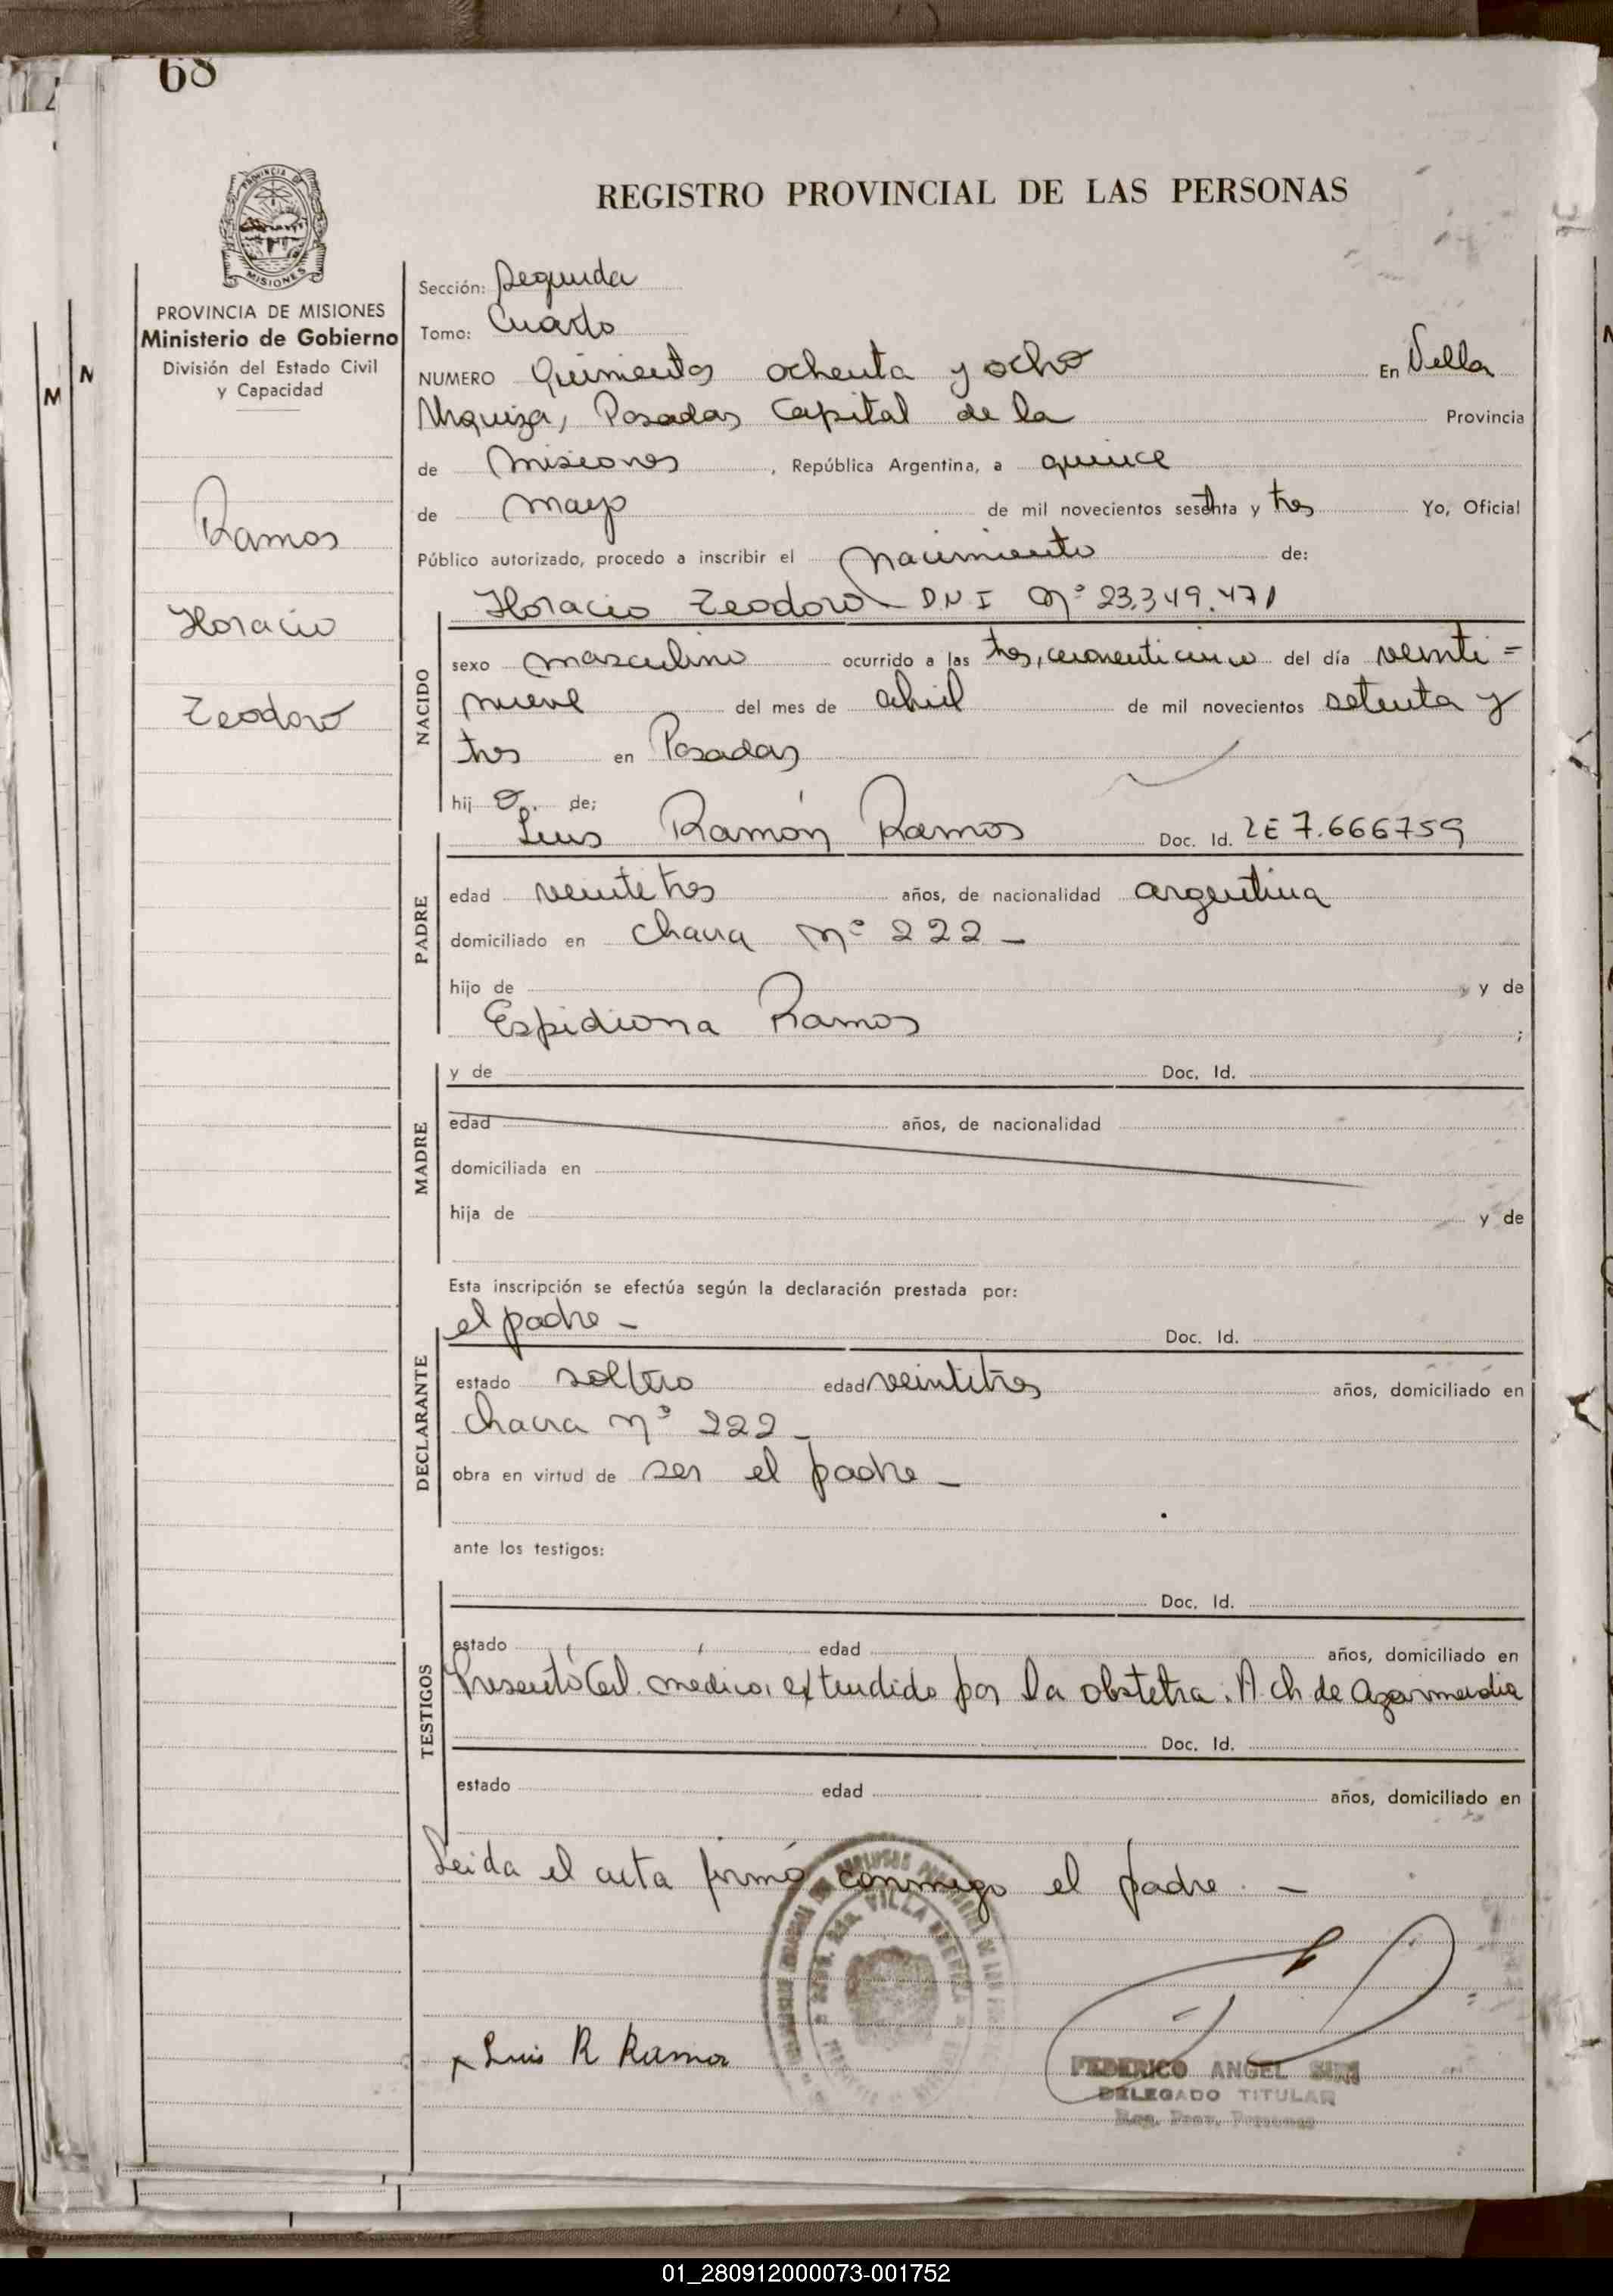 68
REGISTRO PROVINCIAL DE LAS PERSONAS
PROVINCIA DE MISIONES
Ministerio de Gobierno
División del Estado Civil
y Capacidad
Ramos
Horacio
Teodoro
Sección: Segunda
Tomo: Cuarto
NUMERO Quinientos ochenta y ocho En Villa
Urquiza, Posadas Capital de la Provincia
de Misiones, República Argentina, a quince
de mayo de mil novecientos setenta y tres Yo, Oficial
Público autorizado, procedo a inscribir el nacimiento de:
Horacio Teodoro D.N.I Nº 23.349.471
NACIDO
sexo masculino ocurrido a las tres, cero veinticinco del día veinti=
nueve del mes de abril de mil novecientos setenta y
tres en Posadas
hij o. de;
Luis Ramón Ramos Doc. Id. LE 7.666759
PADRE
edad veinte tres años, de nacionalidad argentina
domiciliado en Chacra Nº 222 -
hijo de y de
Espidiona Ramos ;
MADRE
y de Doc. Id.
edad años, de nacionalidad
domiciliada en
hija de y de
Esta inscripción se efectúa según la declaración prestada por:
el padre - Doc. Id.
DECLARANTE
estado soltero edad veintitres años, domiciliado en
Chacra nº 222 -
obra en virtud de ser el padre -
ante los testigos:
Doc. Id.
TESTIGOS
estado edad años, domiciliado en
Presentó Cert. medico, extendido por la obstetra. A. Ch de Azarmendia
Doc. Id.
estado edad años, domiciliado en
Leida el acta firmó conmigo el padre. -
VILLA URQUIZA
x Luis R Ramos
FEDERICO ANGEL
DELEGADO TITULAR
Reg. Prov. Personas
M
N
MISIONES
01_280912000073-001752